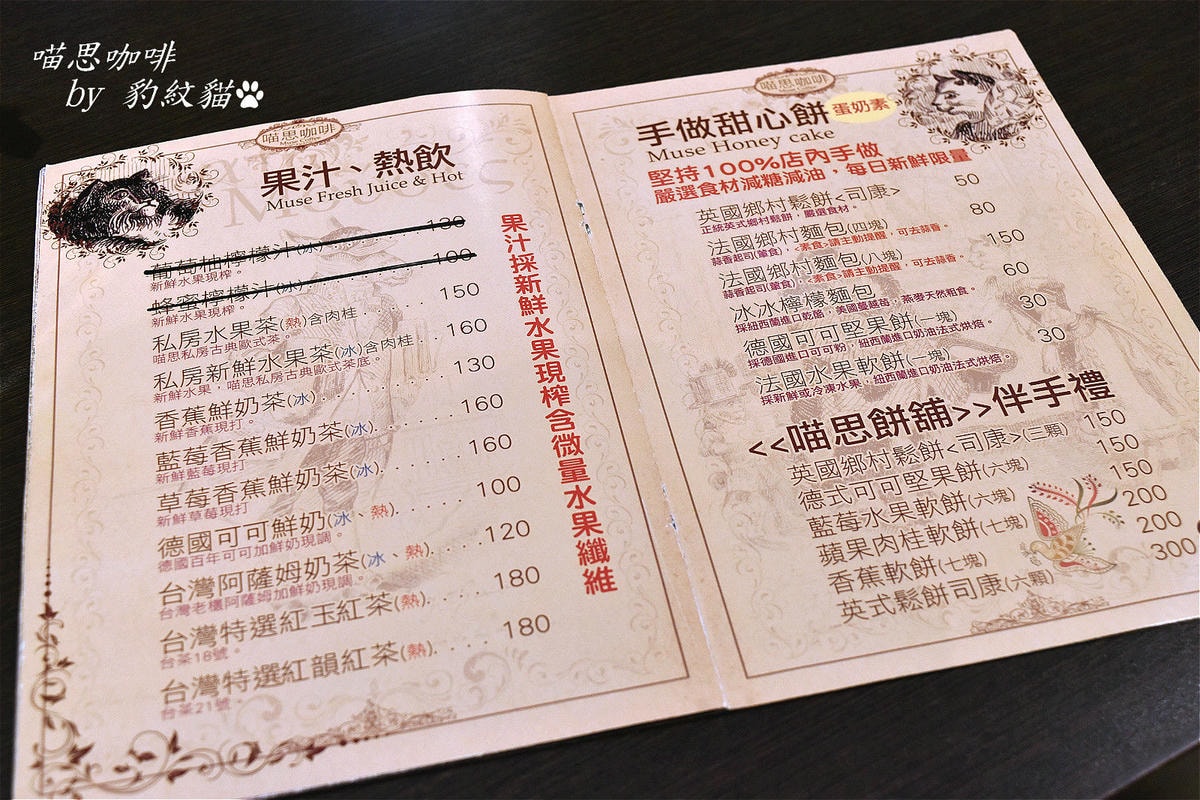 喵思咖啡
by 豹紋貓
喵思咖啡
Muse Coffee
果汁、熱飲
Muse Fresh Juice & Hot
葡萄柚檸檬汁(冰)........130
新鮮水果現榨。
蜂蜜檸檬汁(冰)........100
新鮮水果現榨。
私房水果茶(熱)含肉桂......150
喵思私房古典歐式茶。
私房新鮮水果茶(冰)含肉桂..160
新鮮水果，喵思私房古典歐式茶底。
香蕉鮮奶茶(冰)........130
新鮮香蕉現打。
藍莓香蕉鮮奶茶(冰)......160
新鮮藍莓現打
草莓香蕉鮮奶茶(冰)......160
新鮮草莓現打
德國可可鮮奶(冰、熱).....100
德國百年可可加鮮奶現調。
台灣阿薩姆奶茶(冰、熱)....120
台灣老欉阿薩姆加鮮奶現調。
台灣特選紅玉紅茶(熱).....180
台茶18號。
台灣特選紅韻紅茶(熱).....180
台茶21號。
果汁採新鮮水果現榨含微量水果纖維
喵思咖啡
手做甜心餅 蛋奶素
Muse Honey cake
堅持100%店內手做
嚴選食材減糖減油，每日新鮮限量
英國鄉村鬆餅<司康> 50
正統英式鄉村鬆餅，嚴選食材。
法國鄉村麵包(四塊) 80
蒜香起司(葷食)，<素食>請主動提醒，可去蒜香。
法國鄉村麵包(八塊) 150
蒜香起司(葷食)，<素食>請主動提醒，可去蒜香。
冰冰檸檬麵包 60
採紐西蘭進口乾酪，美國蔓越莓，燕麥天然粗食。
德國可可堅果餅(一塊) 30
採德國進口可可粉，紐西蘭進口奶油法式烘焙。
法國水果軟餅(一塊) 30
採新鮮或冷凍水果，紐西蘭進口奶油法式烘焙。
<<喵思餅舖>>伴手禮
英國鄉村鬆餅<司康>(三顆) 150
德式可可堅果餅(六塊) 150
藍莓水果軟餅(六塊) 150
蘋果肉桂軟餅(七塊) 200
香蕉軟餅(七塊) 200
英式鬆餅司康(六顆) 300